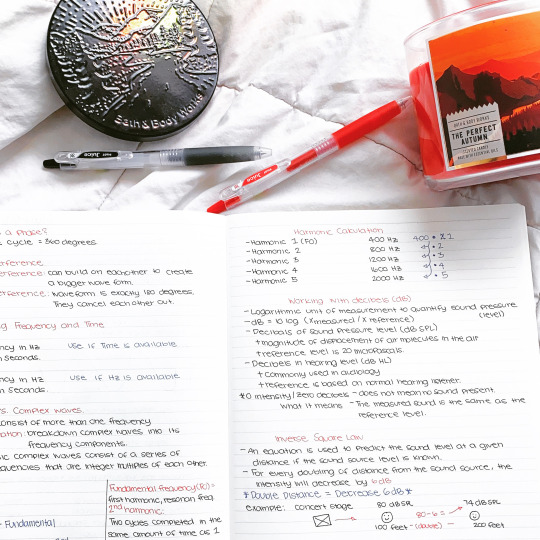 Bath & Body Works
BATH & BODY WORKS
THE PERFECT
AUTUMN
PILOT Juice
Juice
a Phase?
cycle = 360 degrees
erference
erference: can build on eachother to create
a bigger wave form.
erference: Waveform is exactly 180 degrees.
They cancel eachother out.
Frequency and Time
ency in Hz use if Time is available
n Seconds.
ency in Hz use if Hz is available
n Seconds.
s. Complex waves.
onsist of more than one frequency
ation: breakdown complex waves into its
frequency components.
ic complex waves consist of a series of
quencies that are integer multiples of each other.
Fundamental Frequency (F0) =
first harmonic, resonan freq
2nd harmonic:
- Fundamental
Two cycles completed in the
same amount of time as 1
Harmonic Calculation
-Harmonic 1 (F0) 400 Hz 400 • X 2
-Harmonic 2 800 Hz • 2
-Harmonic 3 1200 Hz • 3
-Harmonic 4 1600 Hz • 4
-Harmonic 5 2000 Hz • 5
Working with decibels (dB)
-Logarithmic unit of measurement to quantify sound pressure
(level)
-dB = 10 log (X measured / X reference)
-Decibals of sound pressure level (dB SPL)
+magnitude of displacement of air molecules in the air
+reference level is 20 micropascals.
-Decibels in hearing level (dB HL)
+ Commonly used in audiology
+reference is based on normal hearing listener.
*0 intensity/zero decibels - does not mean no sound present.
What it means - The measured sound is the same as the
reference level.
Inverse Square Law
- An equation is used to predict the sound level at a given
distance if the sound source level is known.
- For every doubling of distance from the sound source, the
intensity will decrease by 6 dB
*Double Distance = Decrease 6dB*
example: concert stage 80 dB SPL 80-6 = 74 dB SPL
100 feet - (double) → 200 feet